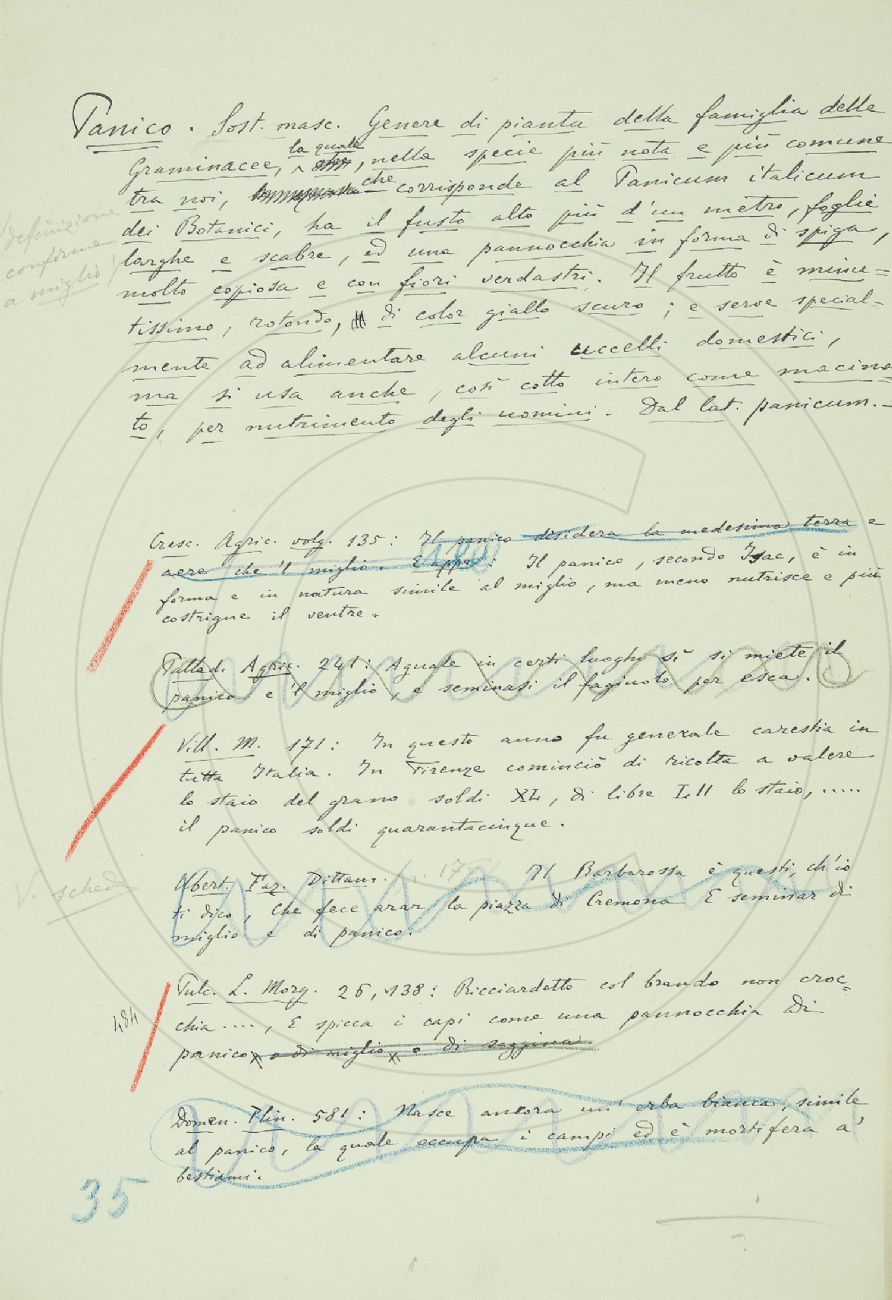 Panico. Sost. masc. Genere di pianta della famiglia delle
Graminacee, la quale, nella specie più nota e più comune
tra noi, che corrisponde al Panicum italicum
dei Botanici, ha il fusto alto più d'un metro, foglie
larghe e scabre, ed una pannocchia in forma di spiga,
molto copiosa e con fiori verdastri. Il frutto è minu=
tissimo, rotondo, di color giallo scuro; e serve special-
mente ad alimentare alcuni uccelli domestici,
ma si usa anche, così cotto intero come macina
to, per nutrimento degli uomini. Dal lat. panicum.-
definizione
conforme
a miglio
Cresc. Agric. volg. 135: Il panico disidera la medesima terra e
aere che 'l miglio. E appr.: Il panico, secondo Isac, è in
forma e in natura simile al miglio, ma meno nutrisce e più
costrigne il ventre.
Pallad. Agric. 241: Aguale in certi luoghi sì si miete il
panico e 'l miglio, e seminasi il fagiuolo per esca.
Vill. M. 171: In questo anno fu generale carestia in
tutta Italia. In Firenze cominciò di ricolta a valere
lo staio del grano soldi XL, di libre LII lo staio, .....
il panico soldi quarantacinque.
V. scheda
Ubert. Faz. Dittam. Il Barbarossa è questi, ch'io
ti dico, Che fece arar la piazza di Cremona E seminar di
miglio e di panico.
484
Pulc. L. Morg. 26, 138: Ricciardetto col brando non croc=
chia ...., E spicca i capi come una pannocchia Di
panico, o di miglio, o di saggina
Domen. Plin. 581: Nasce ancora un' erba bianca, simile
al panico, la quale occupa i campi ed è mortifera a'
bestiami.
35